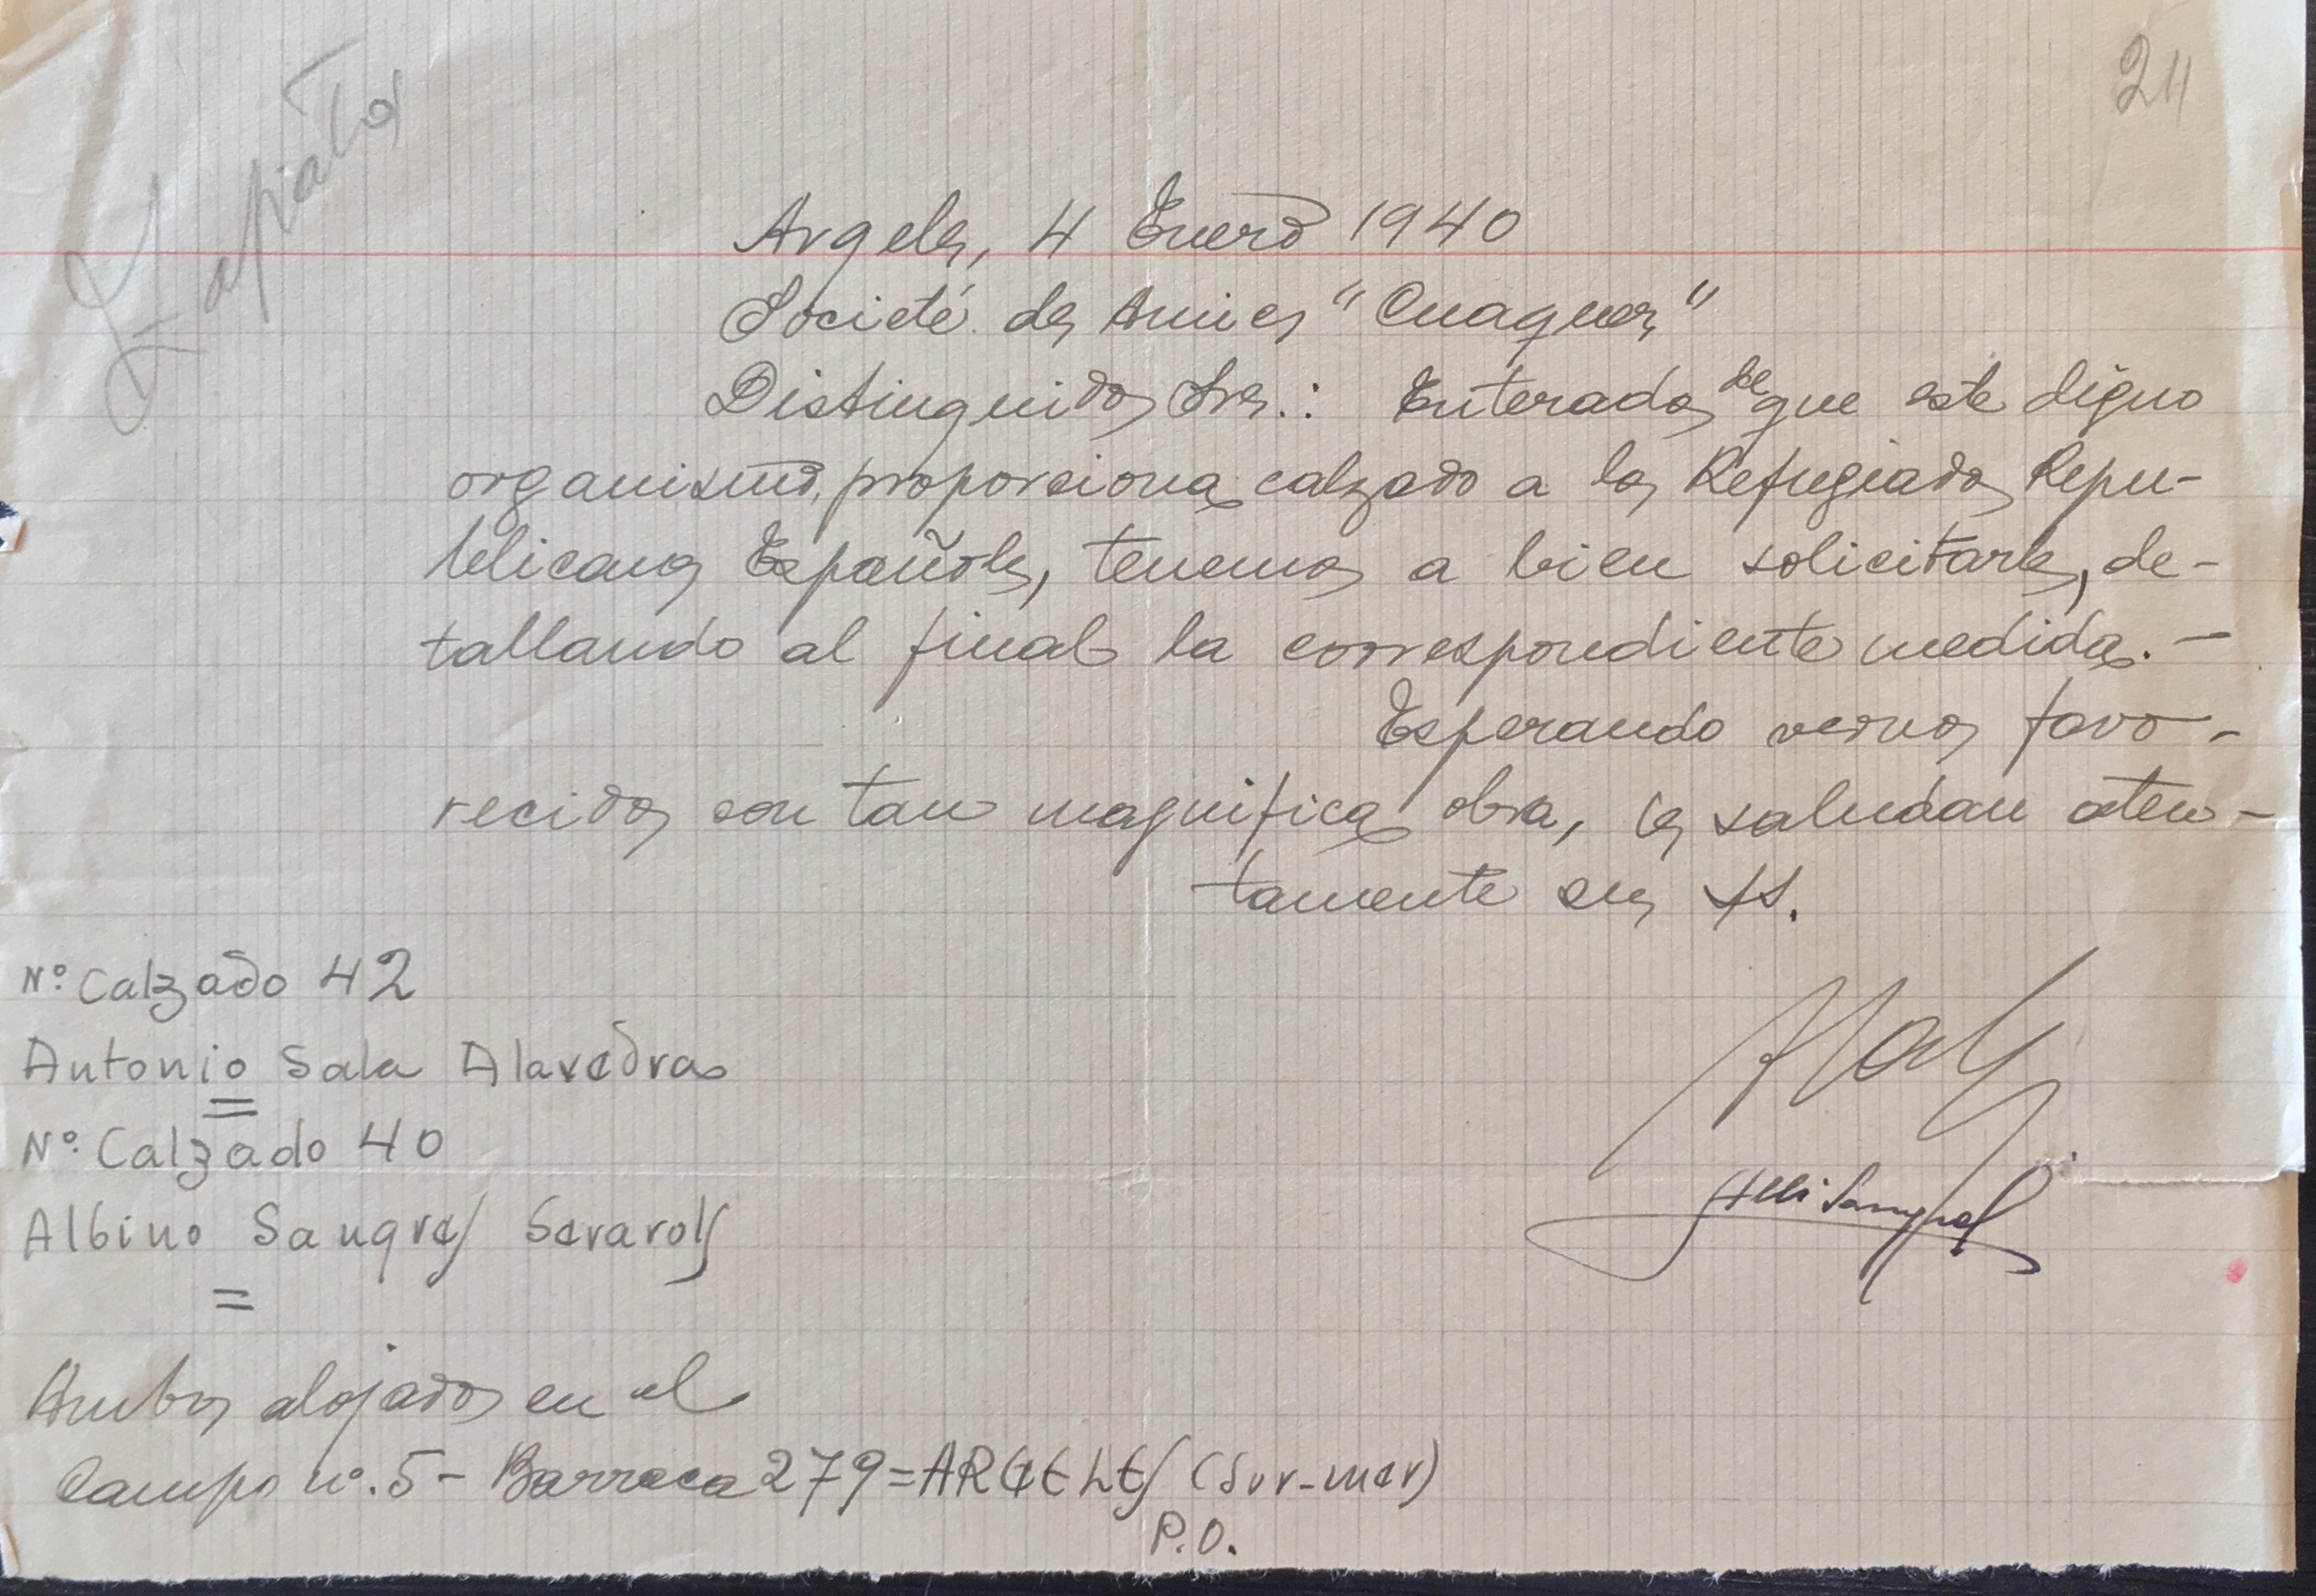 Zapatos
24
Argeles, 4 Enero 1940
Societé des Amies "Cuaquers"
Distinguidos Sres.: Enterados de que este digno
organismo, proporciona calzado a los Refugiados Repu-
blicanos Españoles, tenemos a bien solicitarles, de-
tallando al final la correspondiente medida. -
Esperando vernos favo-
recidos con tan magnifica obra, les saludan aten-
tamente sus ss.
Nº. Calzado 42
Antonio Sala Alavedra
=
Nº. Calzado 40
Albino Sangres Serarols
=
Ambos alojados en el
Campo nº. 5 - Barraca 279 = ARGELES (Sur-mer)
P.O.